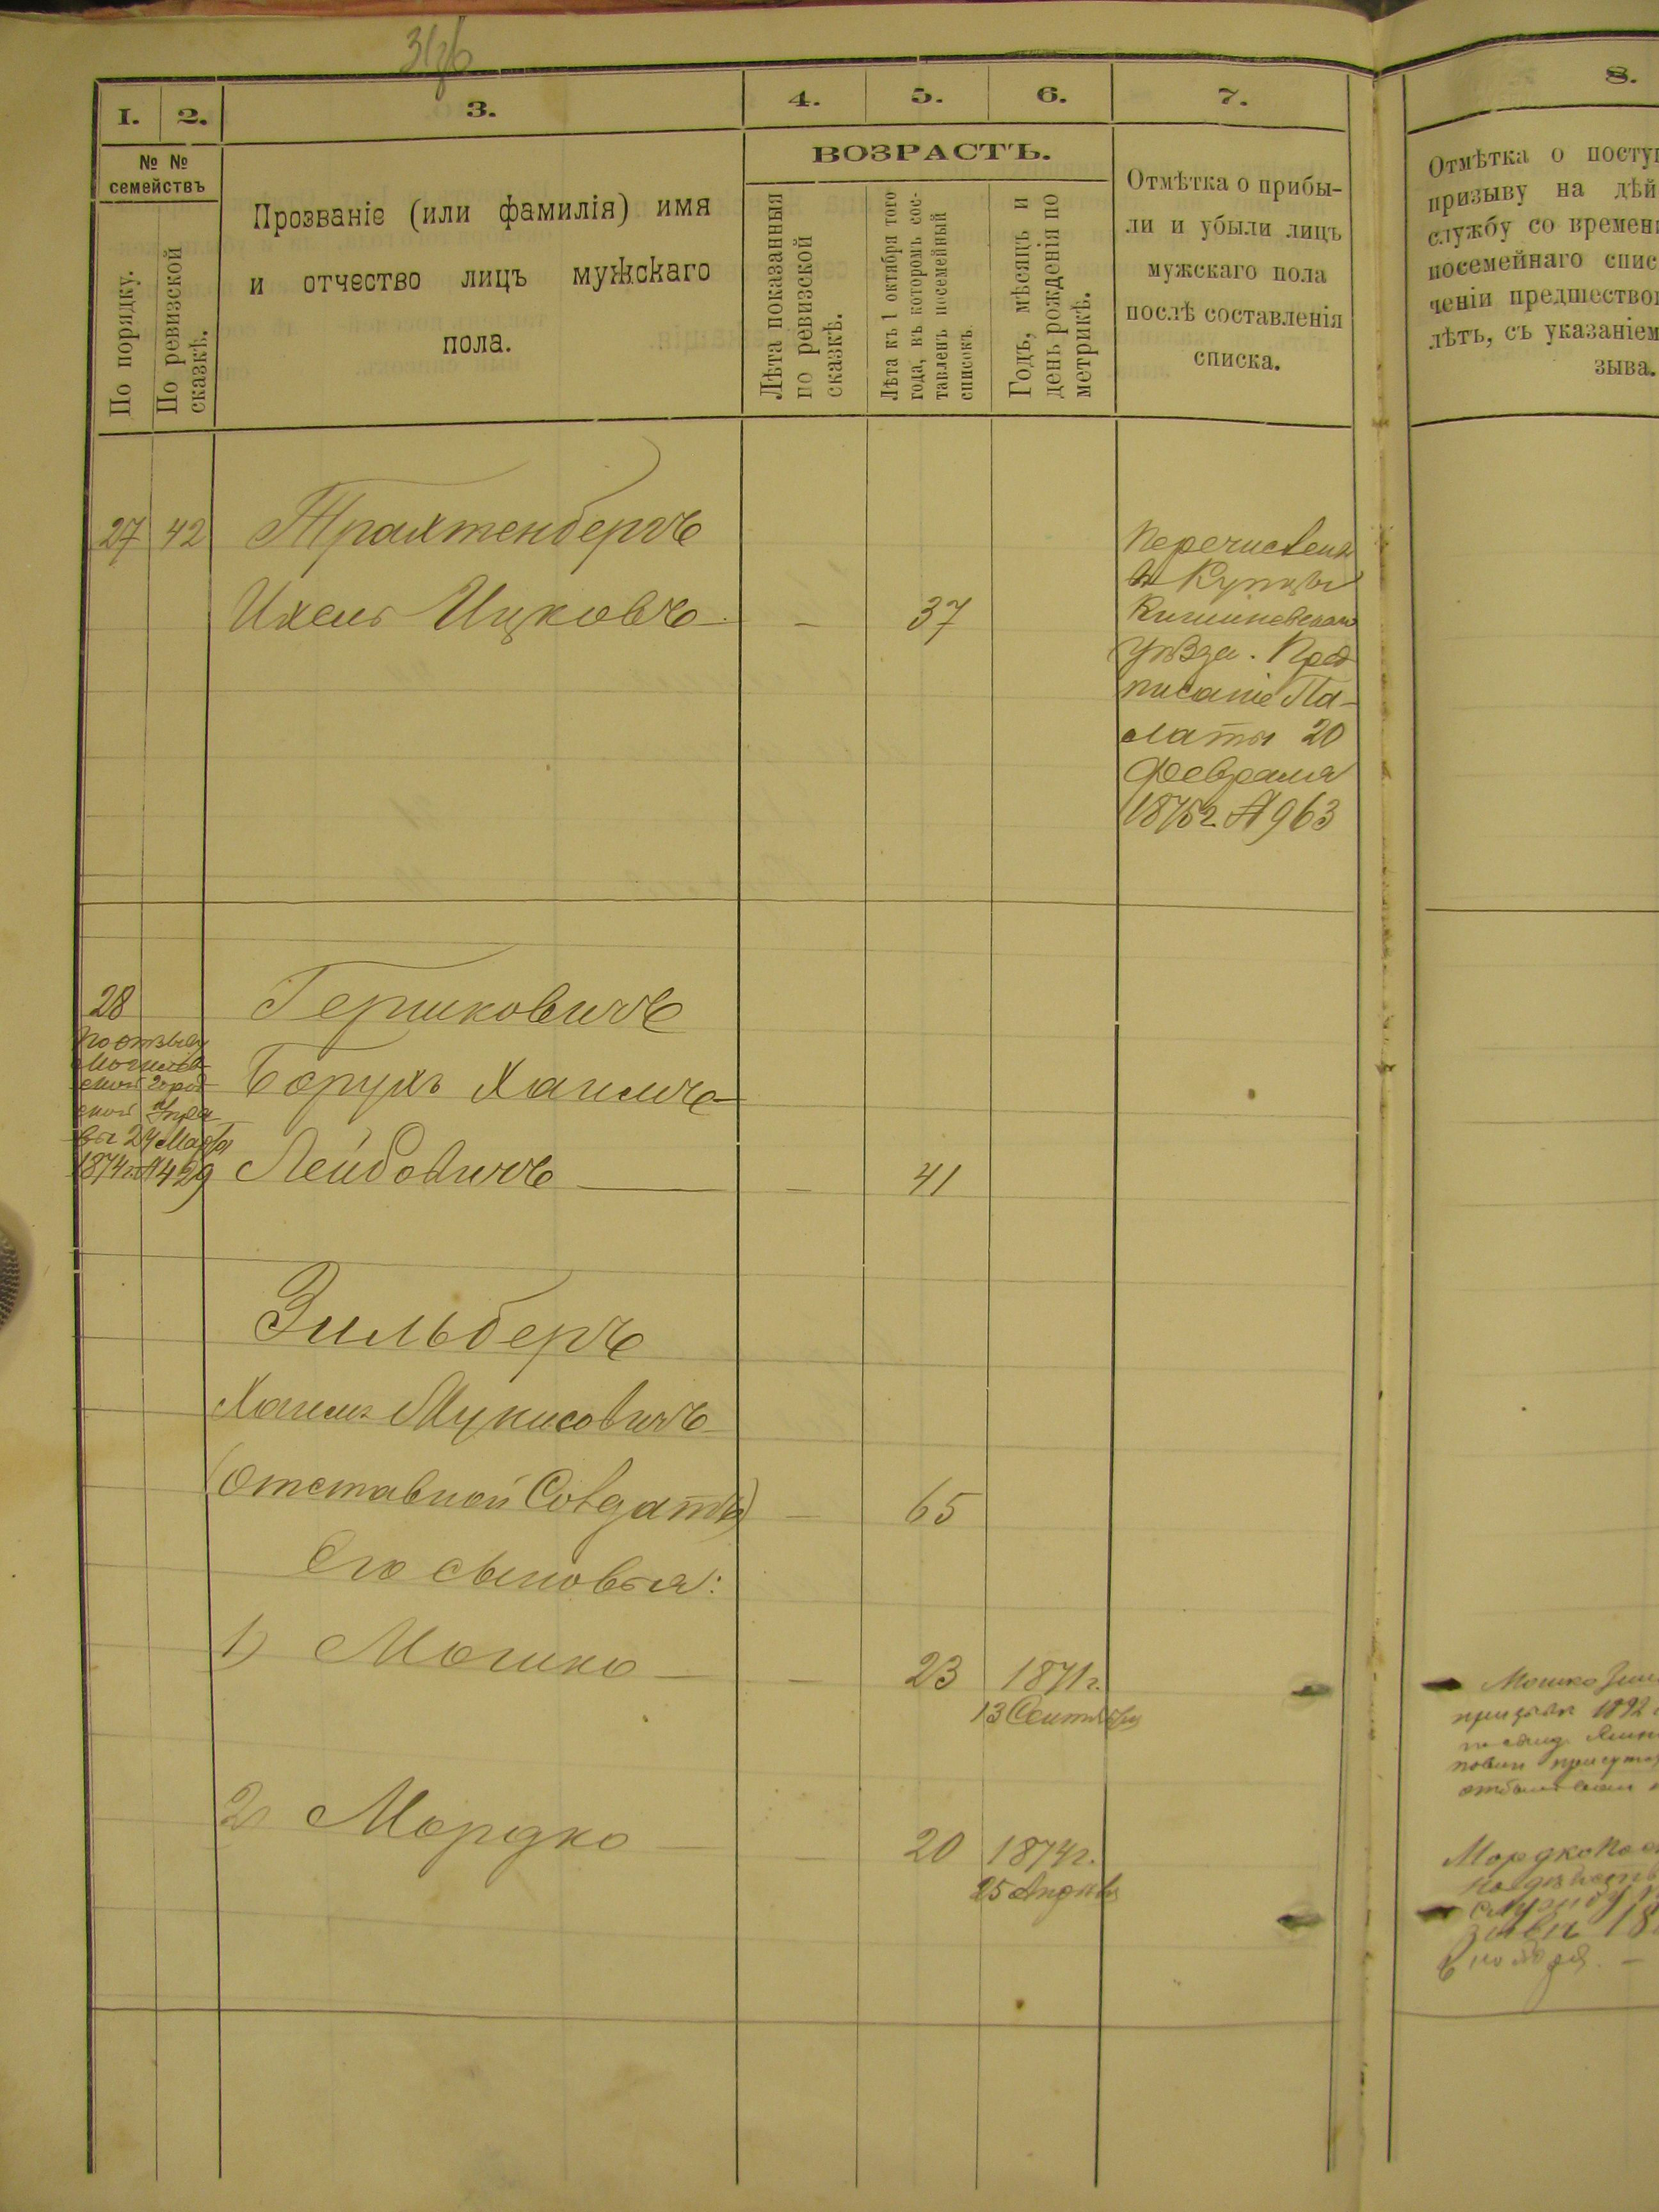 1.
2.
3.
4.
5.
6.
7.
8.
№ №
семействъ
По порядку.
По ревизской
сказкѣ.
Прозваніе (или фамилія) имя
и отчество лицъ мужскаго
пола.
ВОЗРАСТЪ.
Лѣта показанныя
по ревизской
сказкѣ.
Лѣта къ 1 октября того
года, въ которомъ сос-
тавленъ посемейный
списокъ.
Годъ, мѣсяцъ и
день рожденія по
метрикѣ.
Отмѣтка о прибы-
ли и убыли лицъ
мужскаго пола
послѣ составленія
списка.
Отмѣтка о посту
призыву на дѣй
службу со времен
посемейнаго спис
ченіи предшество
лѣтъ, съ указаніем
зыва.
27 42 Трахтенбергъ
Ихель Ицковъ — 37
Перечисленъ
въ Купцы
Кишиневскаго
Уѣзда. Пред
писаніе Па-
латы 20
Февраля
1875г. № 963
28 Гершковичъ
По отзыву
Могилев-
ской город-
ской Упра-
вы 24 Марта
1874г. № 429
Борухъ Хаимъ-
Лейбовичъ — — 41
Зильберъ
Хаимъ
(Отставной Солдатъ) — 65
Его сыновья:
1) Мошко — — 23 1871г.
13 Сентября
2) Мордко — — 20 1874г.
25 Апрѣля
Мошко Зил
призыва 1892
Мордко
службу
18
ноября. —